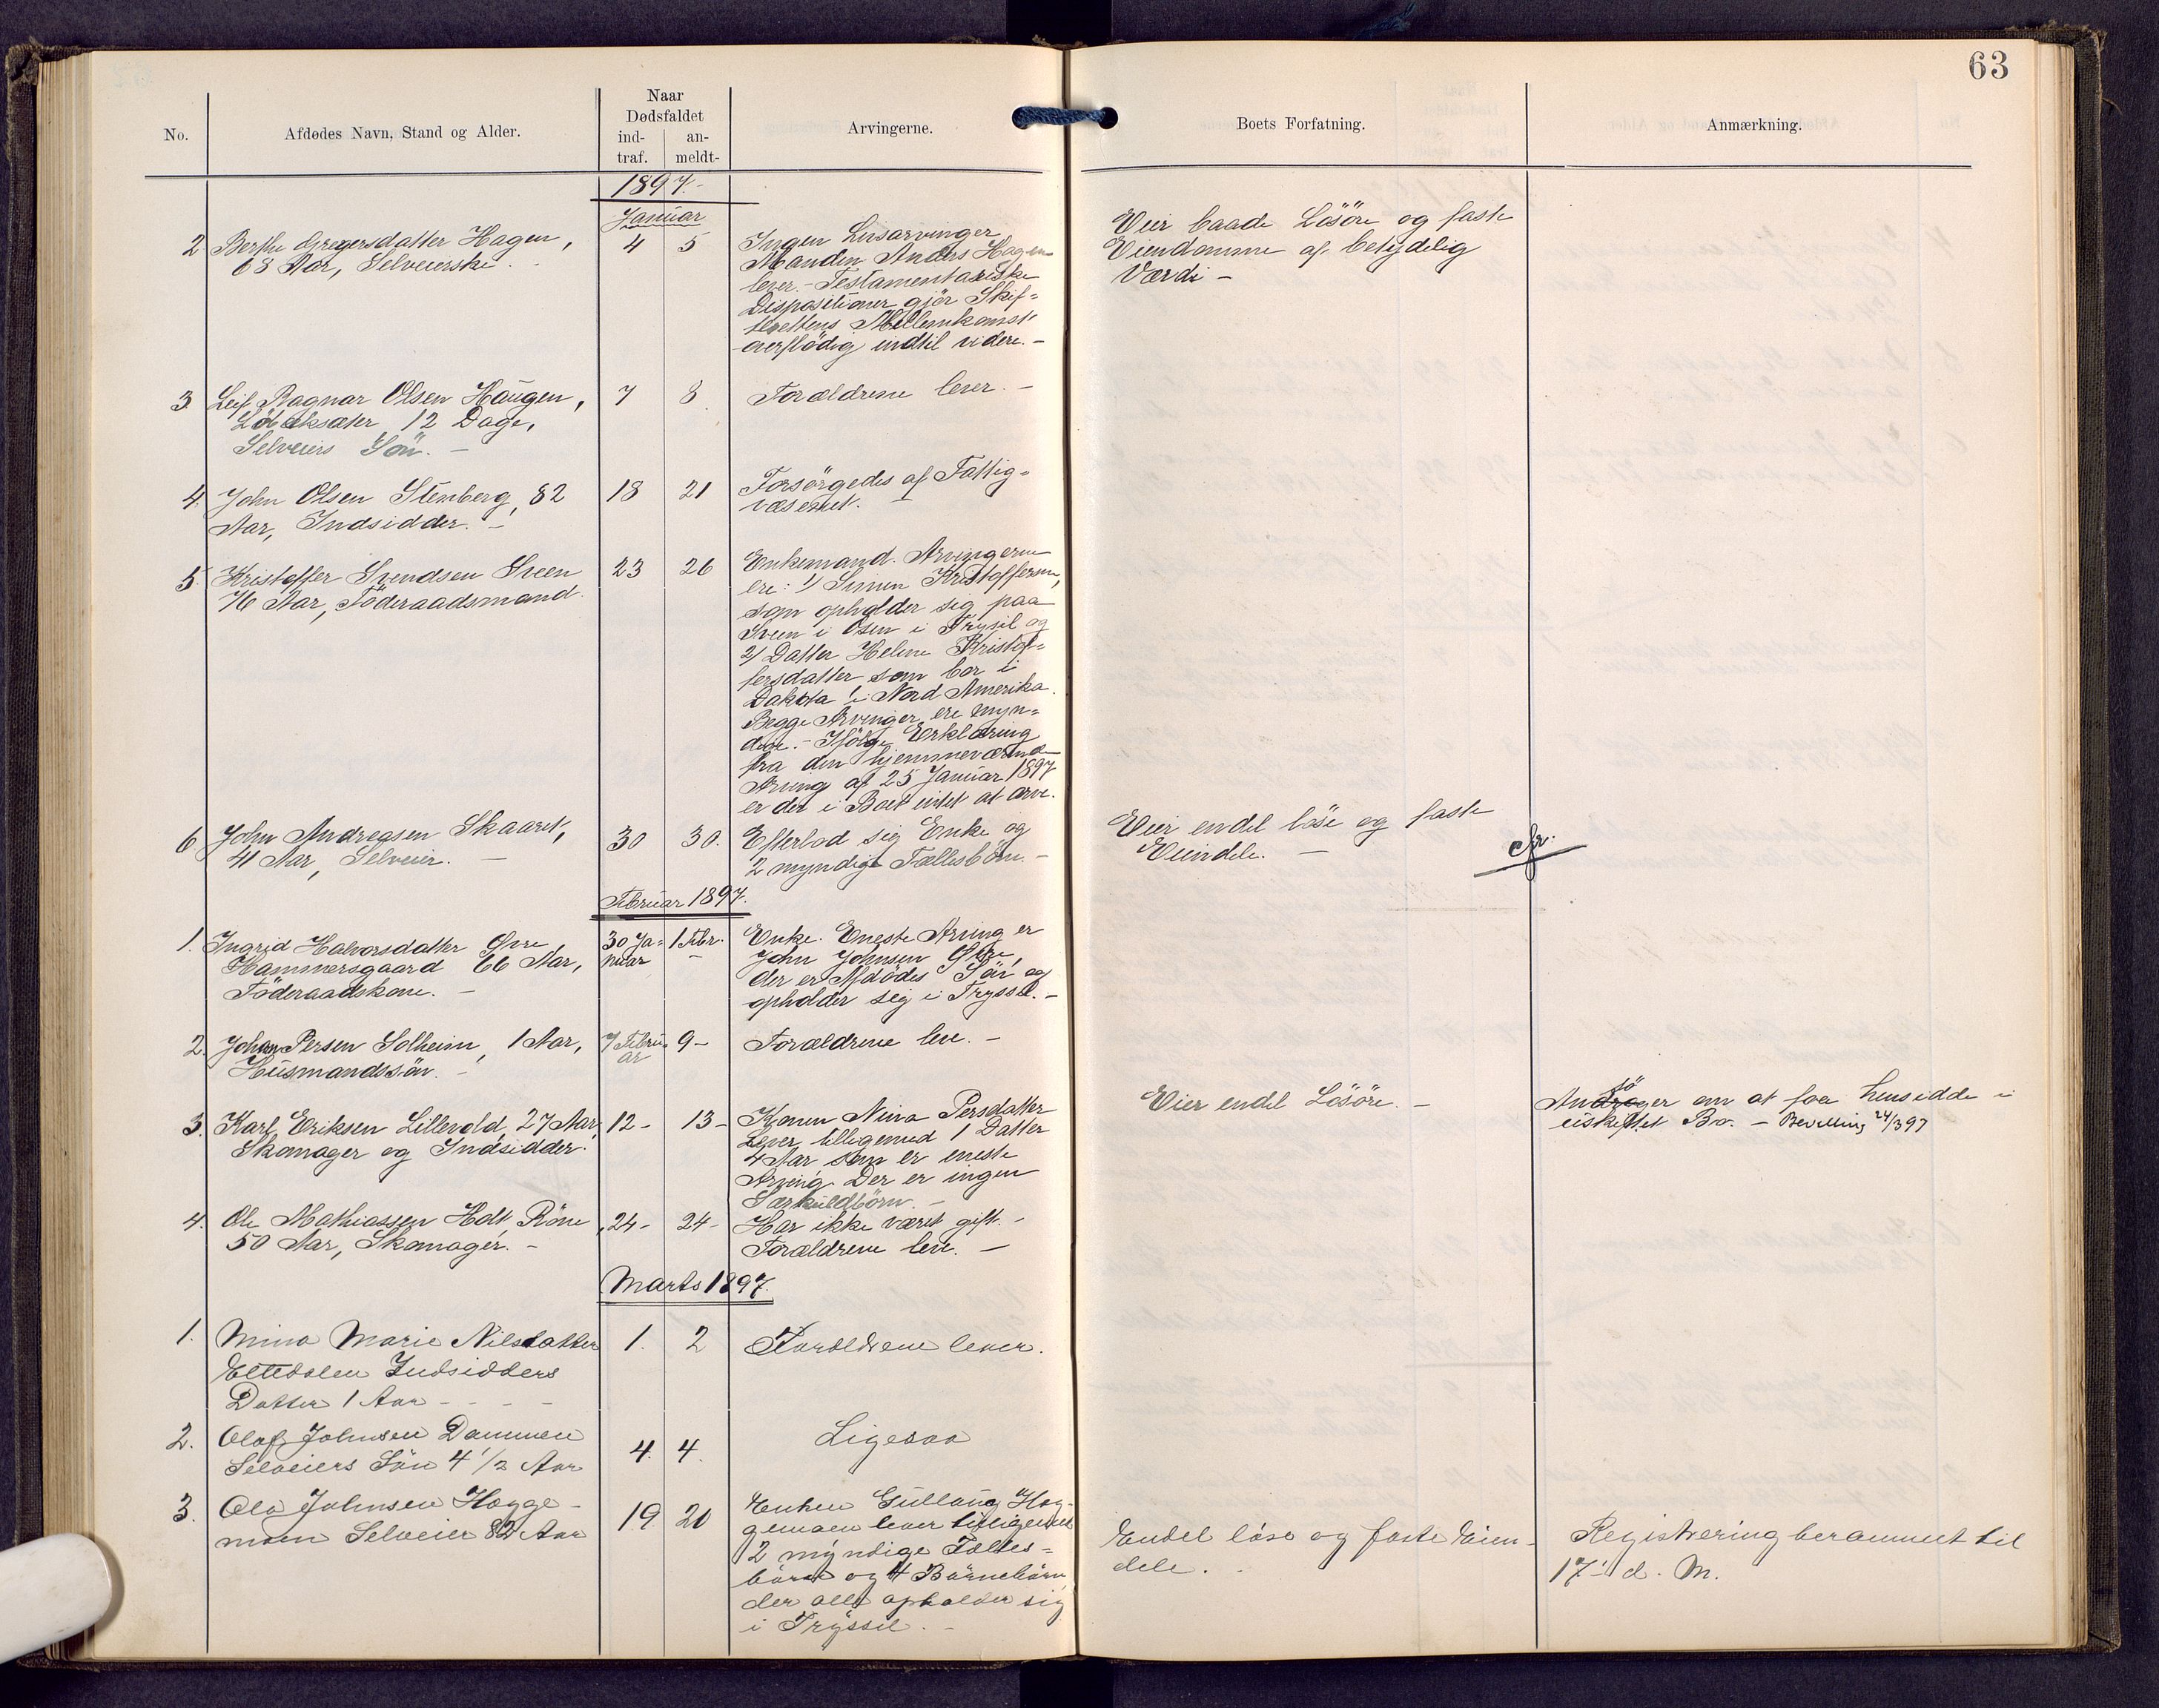 63
Naar
Dødsfaldet
No.
Afdødes Navn, Stand og Alder.
ind-
traf.
an-
meldt-
Arvingerne.
Boets Forfatning.
Anmærkning.
1897.-
Januar
2
Berthe Gregersdatter Hagen,
63 Aar, Selveierske. -
4
5
Ingen Livsarvinger
Manden Anders Hagen
lever. - Testamentariske
Dispositioner gjör Skif-
terettens Mellemkomst
overflödig indtil videre. -
Eier baade Lösöre og faste
Eiendomme af betydelig
Værdi -
3
Leif Ragnar Olsen Haugen,
12 Dage,
Selveiers Sön. -
7
8
Forældrene lever. -
4.
John Olsen Stenberg, 82
Aar, Indsidder. -
18
21
Forsörgedes af Fattig-
væsenet. -
5.
Kristoffer Svendsen Sveen
76 Aar, Föderaadsmand.
23
26
Enkemand. Arvingerne
ere: 1/ Simen Kristoffersen,
som opholder sig paa
Sveen i Osen i Trysil og
2/ Datter Helene Kristof-
fersdatter som bor i
Dakota i Nord Amerika.
Begge Arvinger ere myn-
dige. - Ifölge Erklæring
fra den hjemmeværende
Arving af 25 Januar 1897
er der i Boet intet at arve.
6
John Andreasen Skaaret,
41 Aar, Selveier. -
30
30.
Efterlod sig Enke og
2 myndige Fællesbörn. -
Eier endel löse og faste
Eiendele. -
Februar 1897.
1.
Ingrid Halvorsdatter Øvre
Hammersgaard 66 Aar,
Föderaadskone. -
30 Ja-
nuar
1 Febr.
-
Enke. Eneste Arving er
John Johnsen Øvre,
der er Afdödes Sön og
opholder sig i Tryssil. -
2.
Johan Persen Solheim, 1 Aar,
Husmandssön. -
7 Febru-
ar
9 -
Forældrene leve. -
3.
Karl Eriksen Lillevold, 27 Aar,
Skomager og Indsidder.
12 -
13 -
Konen Nina Persdatter
Lever tilligemed 1 Datter
4 Aar som er eneste
Arving. Der er ingen
Særkuldbörn. -
Eier endel Lösöre. -
Ansöger om at faa hensidde i
uskiftet Bo. - Bevilling 24/3 97
4.
Ole Mathiassen Hdt, Röne
50 Aar, Skomager. -
24 -
24 -
Har ikke været gift. -
Forældrene leve. -
Marts 1897.
1.
Mina Marie Nilsdatter
Eltedalen Indsidders
Datter 1 Aar - - - -
1.
2
Forældrene lever.
2.
Olaf Johnsen Dammen
Selveiers Sön 4 1/2 Aar
4.
4.
Ligesaa
3.
Ola Johnsen Hogge-
moen Selveier 82 Aar
19
20
Enken Gullaug Hog-
gemoen lever tilligemed
2 myndige Fælles-
börn og 4 Börnebörn
der alle opholder sig
i Tryssil. -
Endel löse og faste Eien-
dele. -
Registrering berammet til
17' d. M.